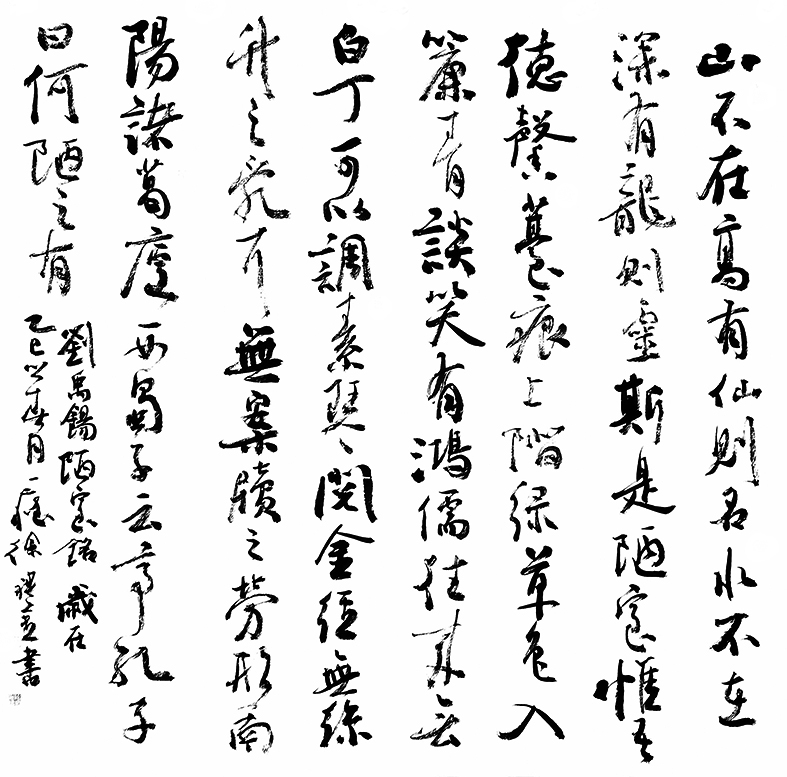 山不在高有仙則名水不在
深有龍則靈斯是陋室惟吾
德馨薹痕上階綠草色入
簾青談笑有鴻儒往來无
白丁可以調素琴閱金經無絲
竹之亂耳無案牘之勞形南
陽諸葛廬西蜀子云亭孔子
曰何陋之有
劉禹錫陋室銘歲在
乙巳春月徐書